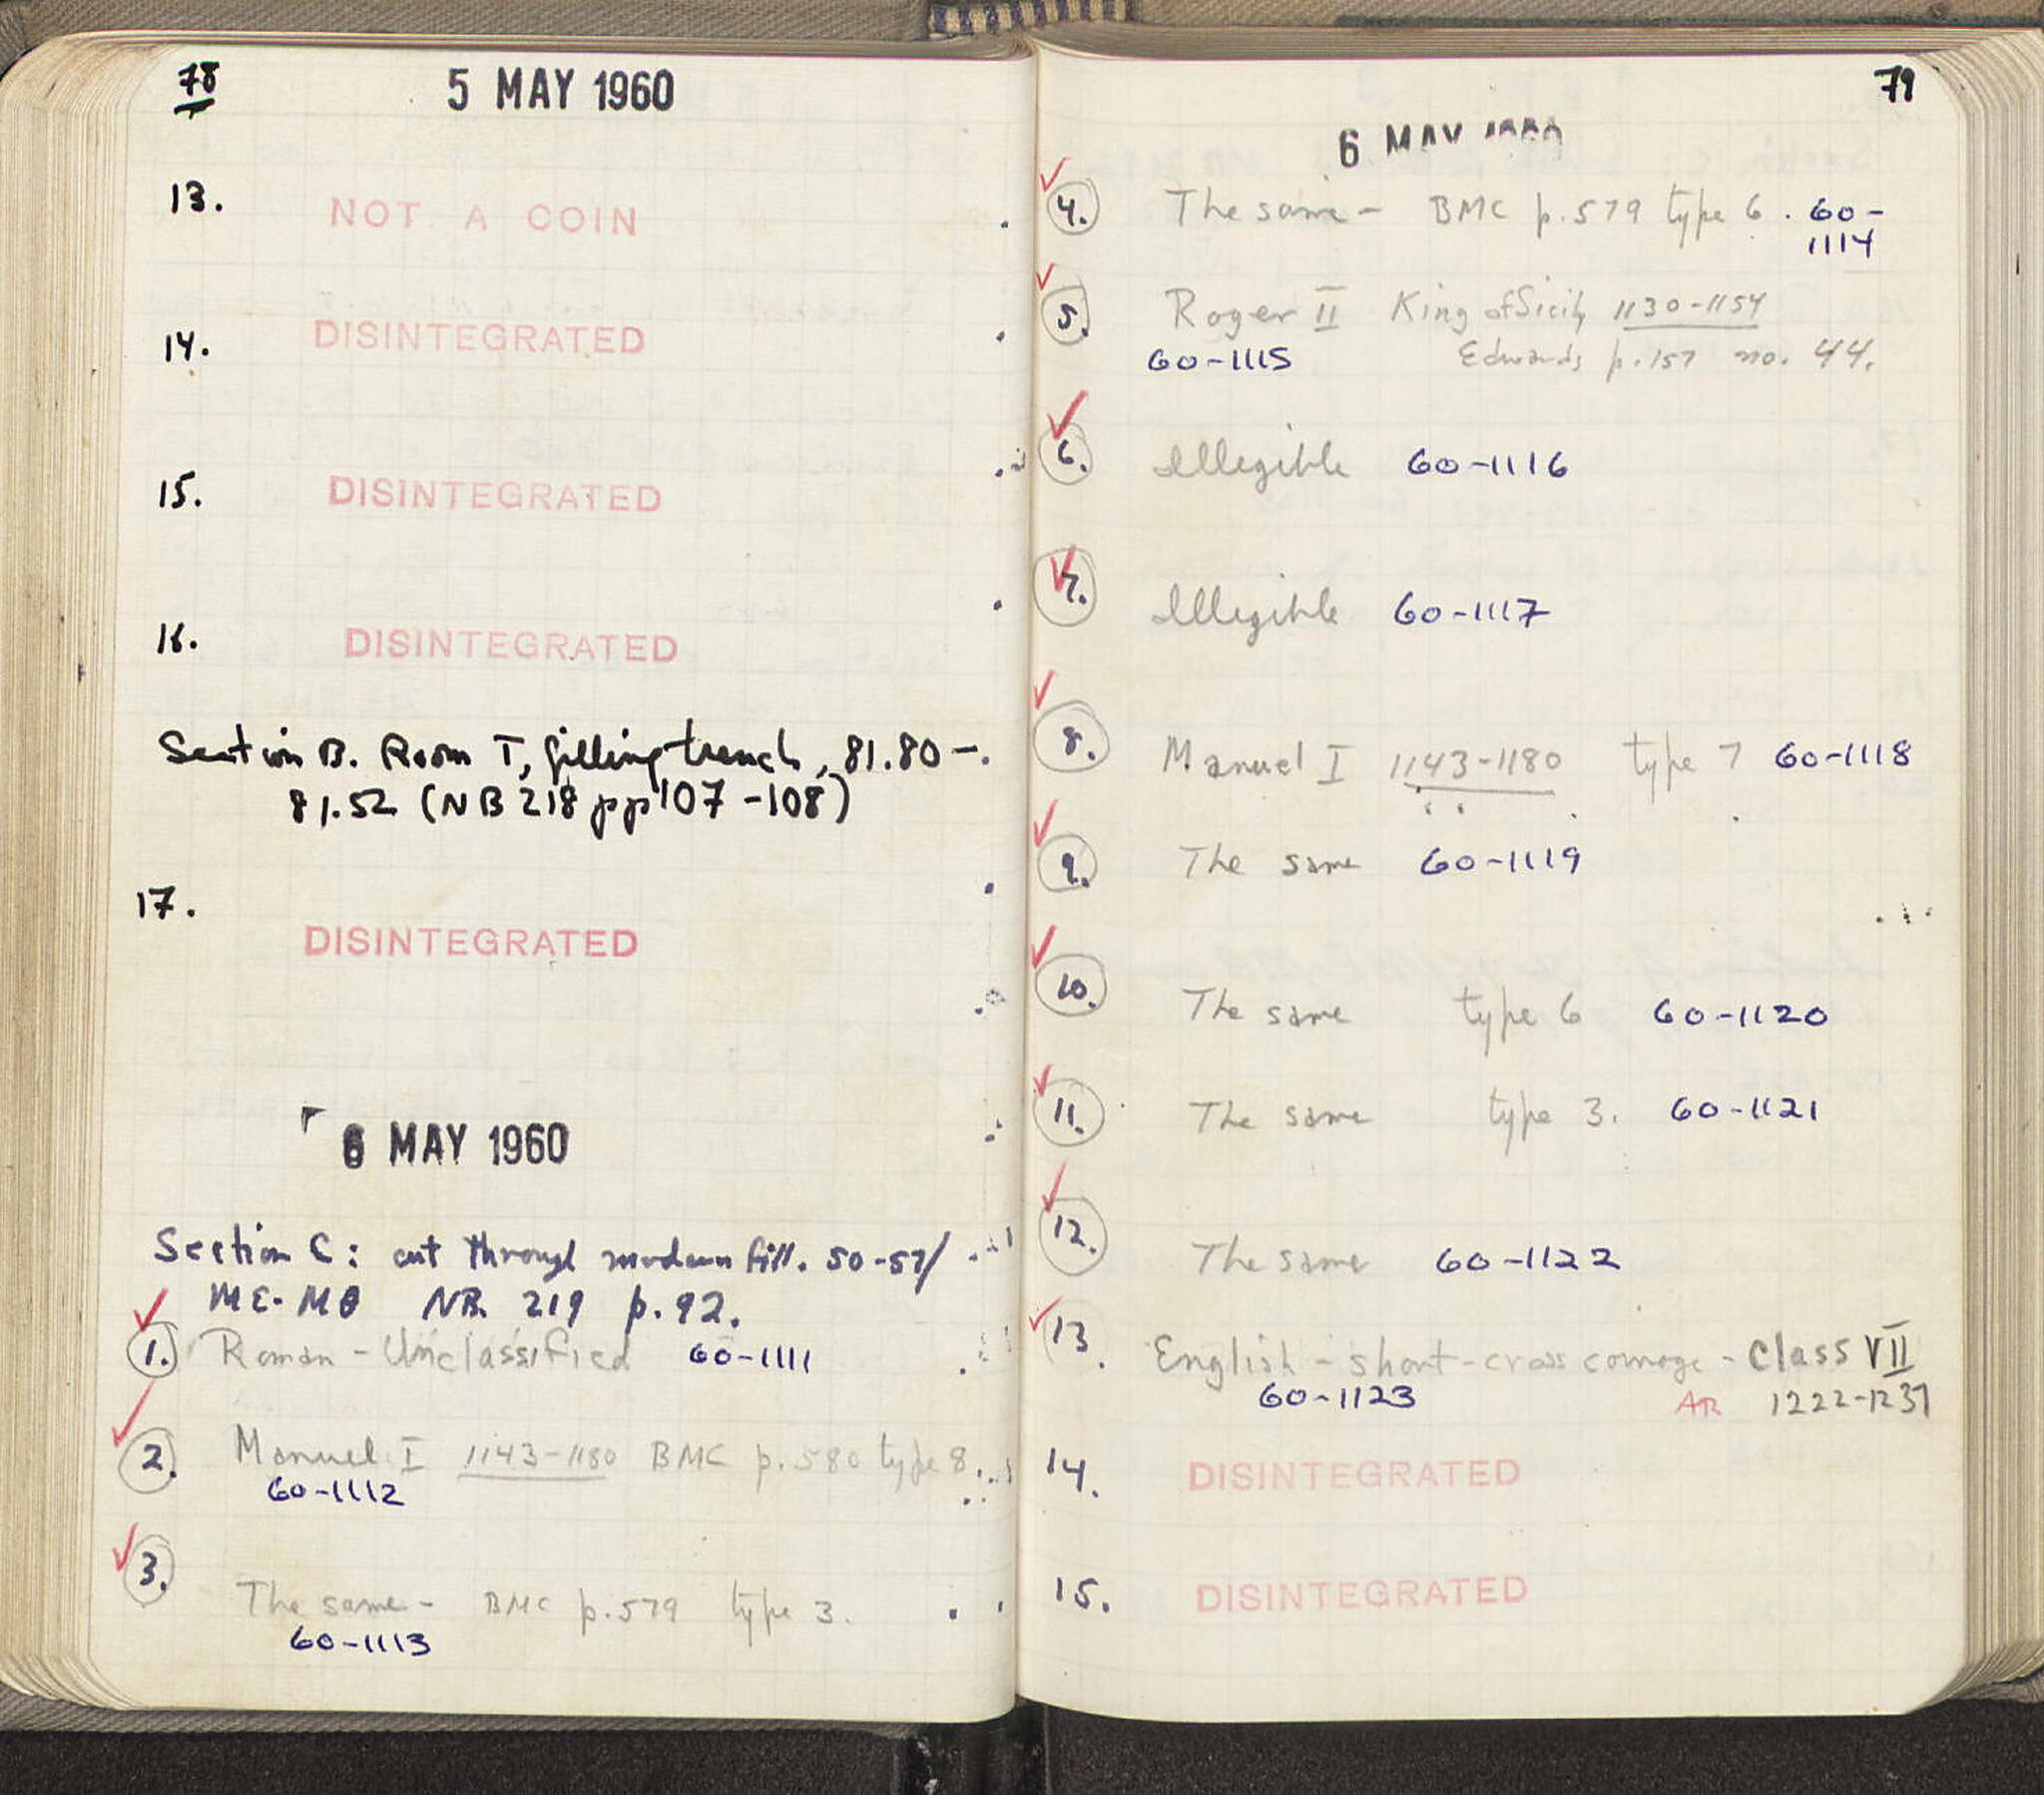 78
5 MAY 1960
13. NOT A COIN
14. DISINTEGRATED
15. DISINTEGRATED
16. DISINTEGRATED
Section B. Room T, filling trench, 81.80 -
81.52 (NB 218 pp 107-108)
17. DISINTEGRATED
6 MAY 1960
Section C: cut through modern fill. 50-57/
ME-MΘ NB. 219 p. 92.
1. Roman - Unclassified 60-1111
2. Manuel I 1143-1180 BMC p. 580 type 8
60-1112
3. The same - BMC p. 579 type 3.
60-1113
79
6 MAY 1960
4. The same - BMC p. 579 type 6. 60-
1114
5. Roger II King of Sicily 1130-1154
60-1115 Edwards p. 157 no. 44.
6. Illegible 60-1116
7. Illegible 60-1117
8. Manuel I 1143-1180 type 7 60-1118
9. The same 60-1119
10. The same type 6 60-1120
11. The same type 3. 60-1121
12. The same 60-1122
13. English - short-cross coinage - Class VII
60-1123 AR 1222-1237
14. DISINTEGRATED
15. DISINTEGRATED